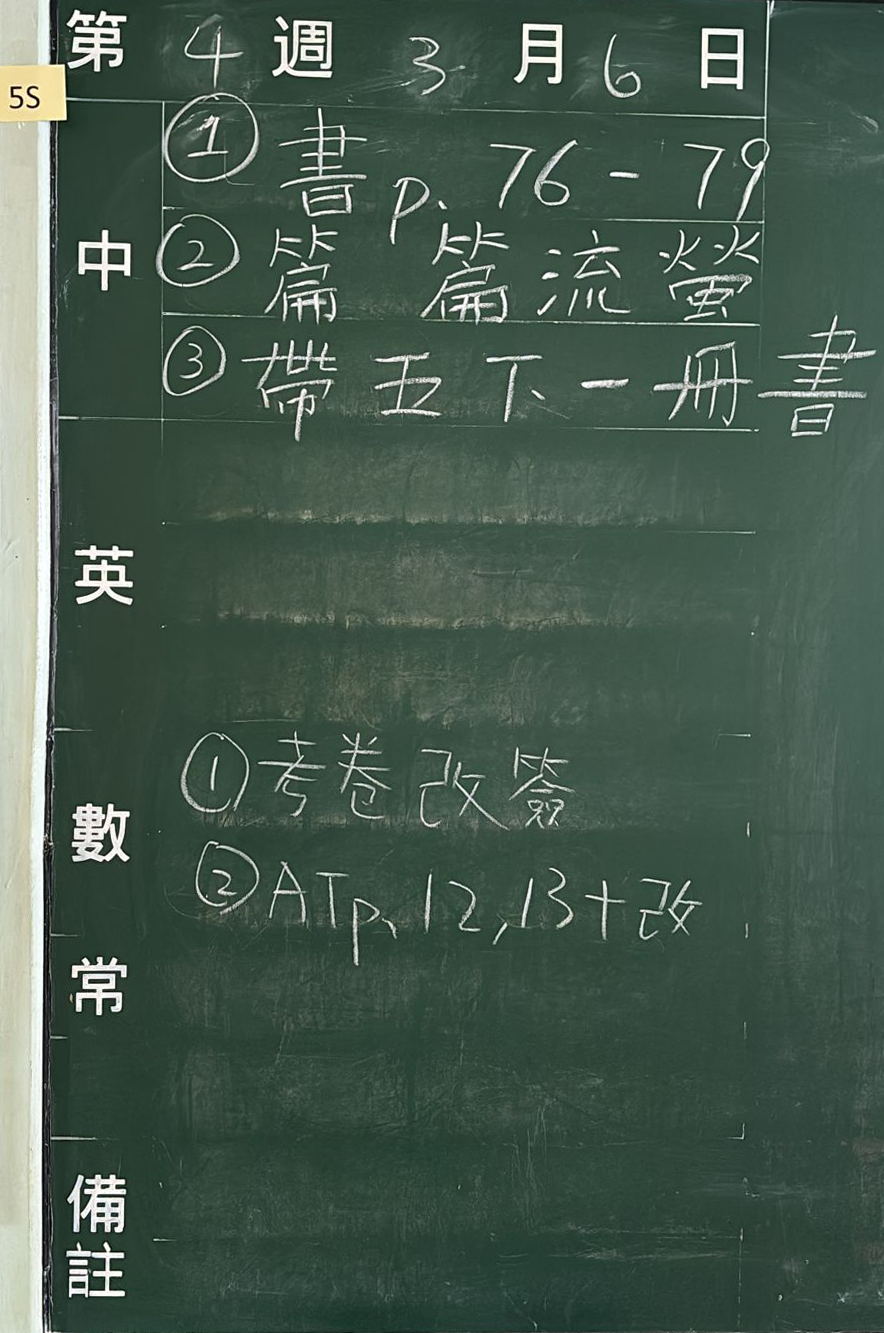 第 4 週 3 月 6 日
5S
中
① 書 p. 76 - 79
② 篇 篇流螢
③ 帶五下一冊書
英
數
① 考卷改簽
② ATp. 12, 13 + 改
常
備註